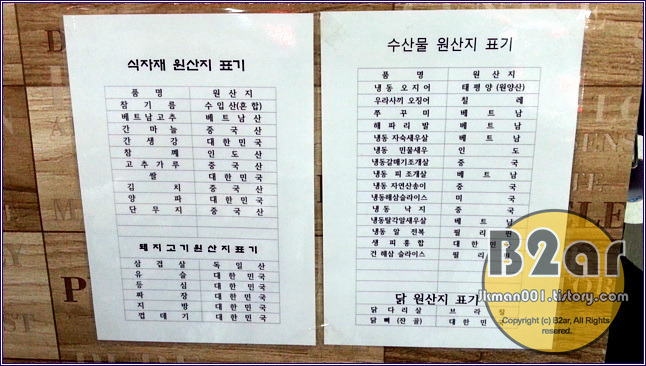 식자재 원산지 표기
품 명 원 산 지
참 기 름 수입산(혼합)
베트남고추 베 트 남 산
간 마 늘 중 국 산
간 생 강 대 한 민 국
참 깨 인 도 산
고추가루 중 국 산
쌀 대 한 민 국
김 치 중 국 산
양 파 대 한 민 국
단 무 지 중 국 산
돼지고기원산지표기
삼 겹 살 독 일 산
유 슬 대 한 민 국
등 심 대 한 민 국
짜 장 대 한 민 국
지 방 대 한 민 국
껍 데 기 대 한 민 국
수산물 원산지 표기
품 명 원 산 지
냉 동 오 지 어 태 평 양 (원양산)
우라사끼 오징어 칠 레
쭈 꾸 미 베 트 남
해 파 리 발 베 트 남
냉동 자숙새우살 베 트 남
냉동 민물새우 인 도
냉동갈매기조개살 중 국
냉동 피 조개살 베 트 남
냉동 자연산송이 중 국
냉동해삼슬라이스 미 국
냉 동 낙 지 중 국
냉동탈각알새우살 베 트 남
냉동 알 전복 필 리 핀
생 피 홍 합 대 한 민
건 해삼 슬라이스 필 리
닭 원산지 표기
닭 다 리 살 브 라 질
닭 뼈 (잔 골) 대 한 민 국
B2ar
Jkman001.tistory.com
Copyright (c) B2ar, All Rights
resered.